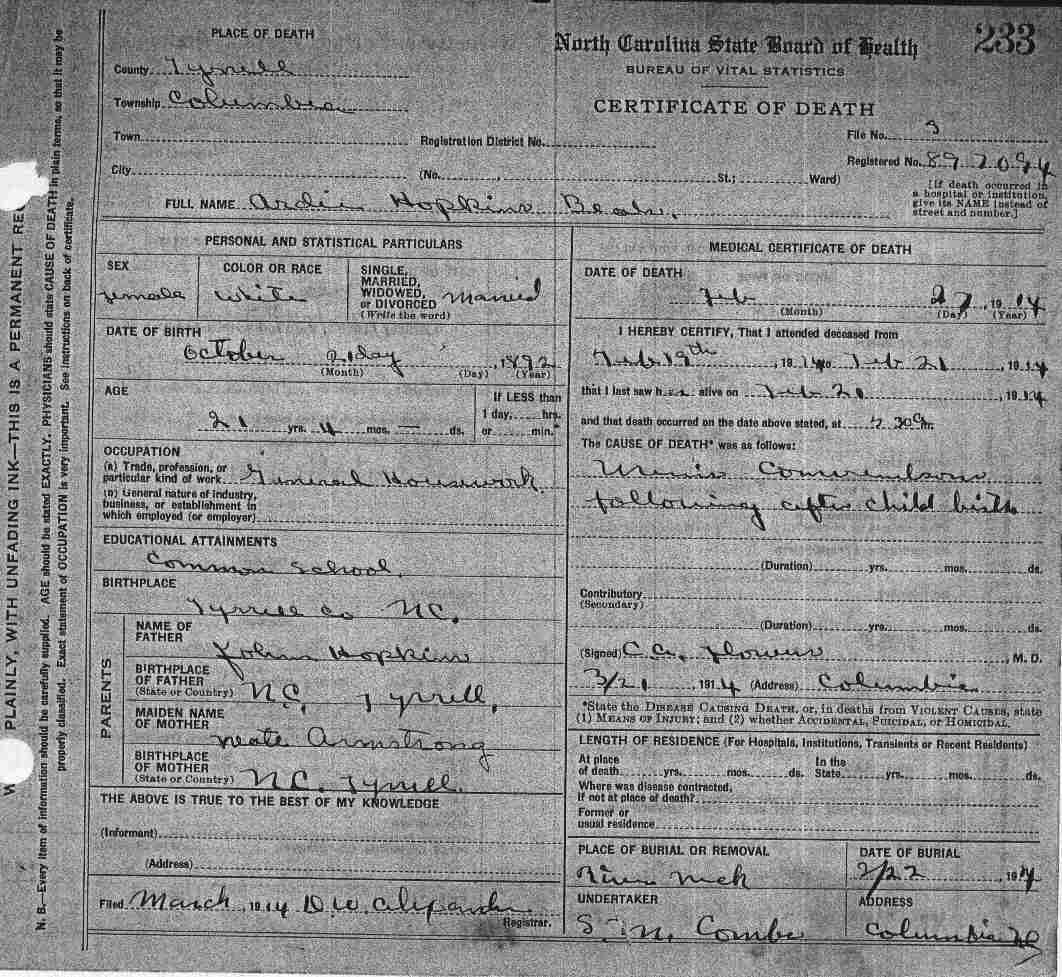 PLACE OF DEATH
County Tyrrell
Township Columbia
Town
City
North Carolina State Board of Health
233
BUREAU OF VITAL STATISTICS
CERTIFICATE OF DEATH
Registration District No.
File No. 3
Registered No. 89 2094
(No. , St.; Ward)
[If death occurred in
a hospital or institution,
give its NAME instead of
street and number.]
FULL NAME Hopkins
PERSONAL AND STATISTICAL PARTICULARS
SEX
female
COLOR OR RACE
White
SINGLE,
MARRIED,
WIDOWED,
or DIVORCED Married
(Write the word)
DATE OF BIRTH
October 21 day, 1892
(Month) (Day) (Year)
AGE
21 yrs. 4 mos. — ds.
If LESS than
1 day, hrs.
or min.
OCCUPATION
(a) Trade, profession, or
particular kind of work General Housework
(b) General nature of industry,
business, or establishment in
which employed (or employer)
EDUCATIONAL ATTAINMENTS
Common School.
BIRTHPLACE
Tyrrell Co NC.
PARENTS
NAME OF
FATHER
John Hopkins
BIRTHPLACE
OF FATHER
(State or Country) N.C. Tyrrell,
MAIDEN NAME
OF MOTHER
Armstrong
BIRTHPLACE
OF MOTHER
(State or Country) N.C. Tyrrell.
THE ABOVE IS TRUE TO THE BEST OF MY KNOWLEDGE
(Informant)
(Address)
Filed March, 1914 D W. Alexander
Registrar.
MEDICAL CERTIFICATE OF DEATH
DATE OF DEATH
Feb , 1914
(Month) (Day) (Year)
I HEREBY CERTIFY, That I attended deceased from
Feb 19th, 1914 to Feb 21, 1914
that I last saw her alive on Feb , 1914
and that death occurred on the date above stated, at 30 m.
The CAUSE OF DEATH* was as follows:
following after child birth
(Duration) yrs. mos. ds.
Contributory
(Secondary)
(Duration) yrs. mos. ds.
(Signed) Flowers, M. D.
3/21, 1914 (Address) Columbia
*State the DISEASE CAUSING DEATH, or, in deaths from VIOLENT CAUSES, state
(1) MEANS OF INJURY; and (2) whether ACCIDENTAL, SUICIDAL, or HOMICIDAL.
LENGTH OF RESIDENCE (For Hospitals, Institutions, Transients or Recent Residents)
At place
of death yrs. mos. ds.
In the
State yrs. mos. ds.
Where was disease contracted,
if not at place of death?
Former or
usual residence
PLACE OF BURIAL OR REMOVAL
River neck
DATE OF BURIAL
2/22, 1914
UNDERTAKER
S. M. Combs
ADDRESS
Columbia NC
PLAINLY, WITH UNFADING INK—THIS IS A PERMANENT
N. B.—Every item of information should be carefully supplied. AGE should be stated EXACTLY. PHYSICIANS should state CAUSE OF DEATH in plain terms, so that it may be
properly classified. Exact statement of OCCUPATION is very important. See instructions on back of certificate.